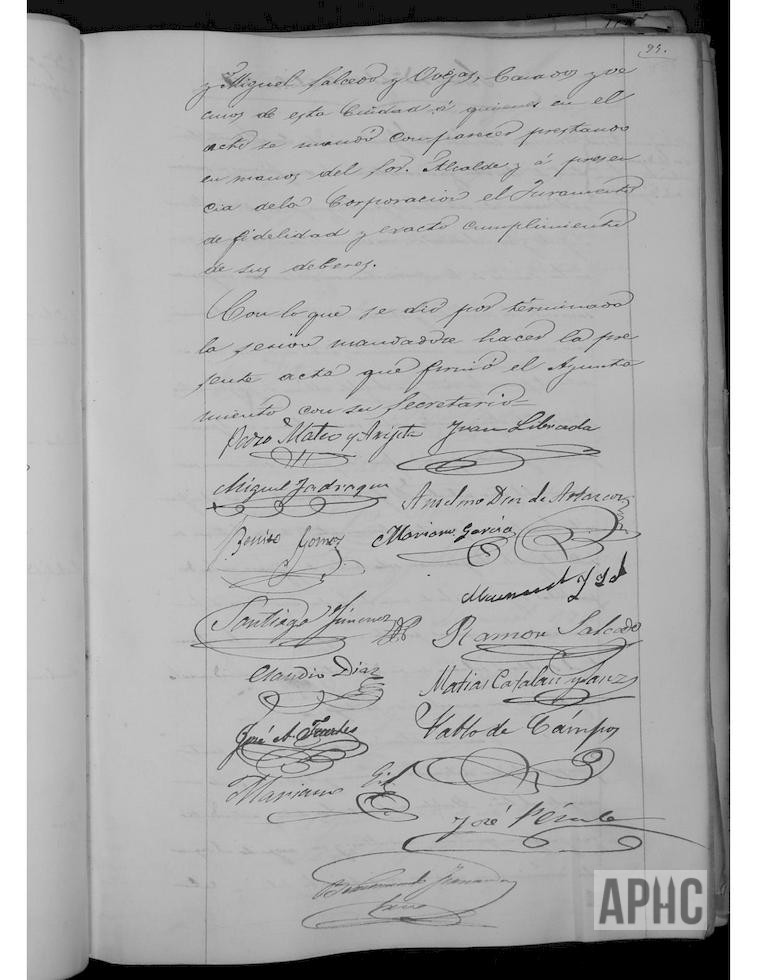 95.
y Miguel Salcedo y Ovejas, Casados y ve
cinos de esta Ciudad á quienes en el
acto se mandó comparecer prestando
en manos del Sor. Alcalde y á presen
cia dela Corporacion el Juramento
de fidelidad y exacto cumplimiento
de sus deberes.
Con lo que se dió por terminada
la sesion mandandose hacer la pre
sente acta que firmó el Ayunta
miento con su Secretario
Mateo y Juan Librada
Miguel Jadraque
Anselmo Diez de
Benito Gomez Mariano Garcia
Santiago Jimenez
Ramon Salcedo
Claudio Diaz
Matias Catalan y Sanz
José A. Fuertes
Pablo de Cámpos
Mariano Gil
José
APHC